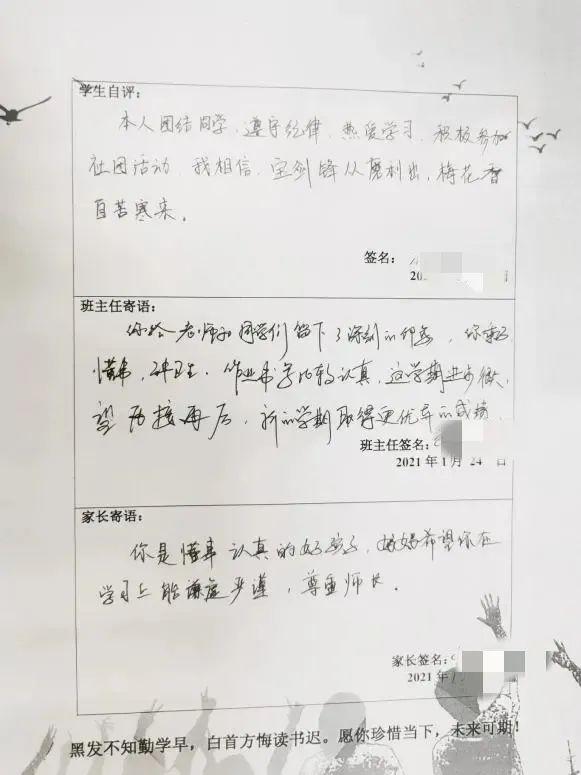 学生自评：
本人团结同学，遵守纪律，热爱学习，积极参加
社团活动，我相信，宝剑锋从磨利出，梅花香
自苦寒来。
签名：
202
班主任寄语：
你给老师和同学们留下了深刻的印象，你
懂事，讲卫生，作业书写比较认真，这学期进步很大，
望再接再厉，新的学期取得更优异的成绩。
班主任签名：
2021年1月24日
家长寄语：
你是懂事认真的好孩子，妈妈希望你在
学习上能谦虚严谨，尊重师长。
家长签名：
2021年1
黑发不知勤学早，白首方悔读书迟。愿你珍惜当下，未来可期！